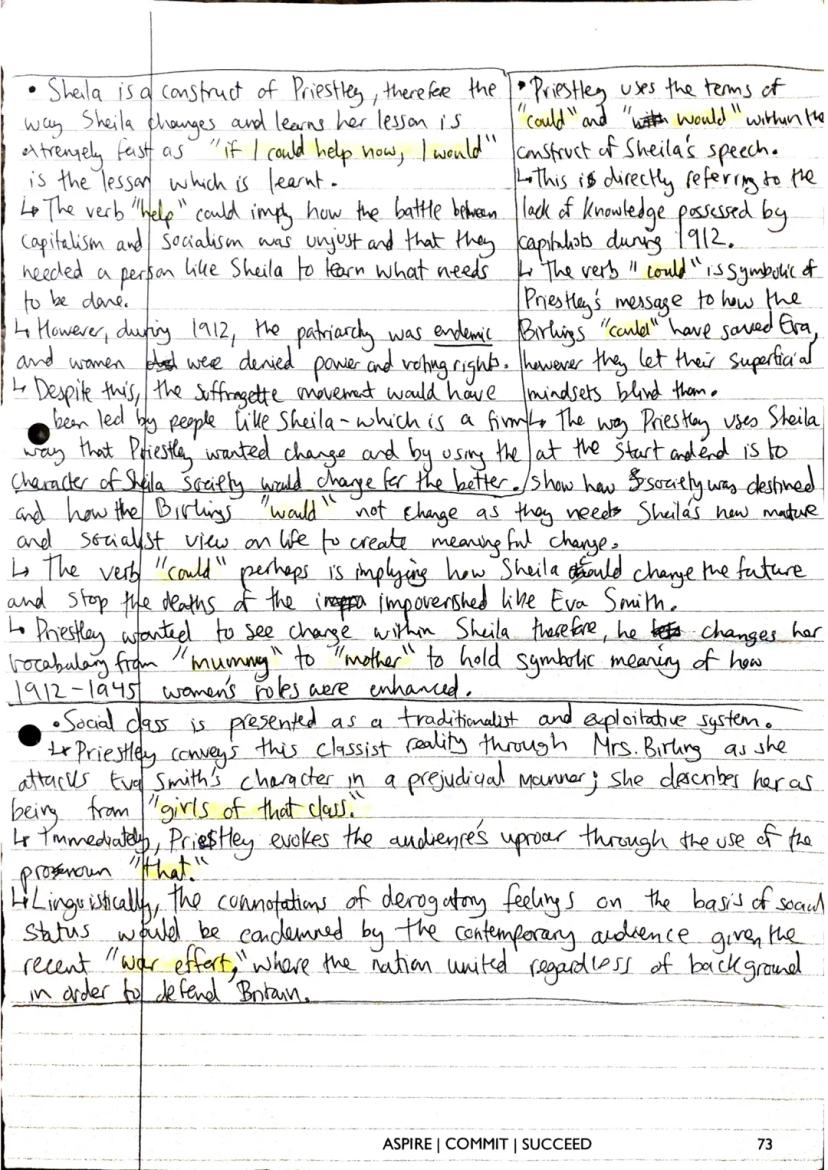 • Sheila is a construct of Priestley, therefore the
way Sheila changes and learns her lesson is
extremely fast as "if I could help now, I would"
is the lesson which is learnt.
↳ The verb "help" could imply how the battle between
Capitalism and Socialism was unjust and that they
needed a person like Sheila to learn what needs
to be done.
↳ However, during 1912, the patriarchy was endemic
and women were denied power and voting rights.
↳ Despite this, the suffragette movement would have
been led by people like Sheila - which is a firm
way that Priestley wanted change and by using the
character of Sheila society would change for the better.
• Priestley uses the terms of
"could" and "would" within the
construct of Sheila's speech.
↳ This is directly referring to the
lack of knowledge possessed by
capitalists during 1912.
↳ The verb "could" is symbolic of
Priestley's message to how the
Birlings "could" have saved Eva,
however they let their superficial
mindsets blind them.
↳ The way Priestley uses Sheila
at the start and end is to
show how society was destined
and how the Birlings "would" not change as they needs Sheila's new mature
and socialist view on life to create meaningful change.
↳ The verb "could" perhaps is implying how Sheila could change the future
and stop the deaths of the impoverished like Eva Smith.
↳ Priestley wanted to see change within Sheila therefore, he changes her
vocabulary from "mummy" to "mother" to hold symbolic meaning of how
1912-1945 women's roles were enhanced.
• Social class is presented as a traditionalist and exploitative system.
↳ Priestley conveys this classist reality through Mrs. Birling as she
attacks Eva Smith's character in a prejudicial manner; she describes her as
being from "girls of that class."
↳ Immediately, Priestley evokes the audience's uproar through the use of the
pronoun "that."
↳ Linguistically, the connotations of derogatory feelings on the basis of social
status would be condemned by the contemporary audience given the
recent "war effort," where the nation united regardless of background
in order to defend Britain.
ASPIRE | COMMIT | SUCCEED 73